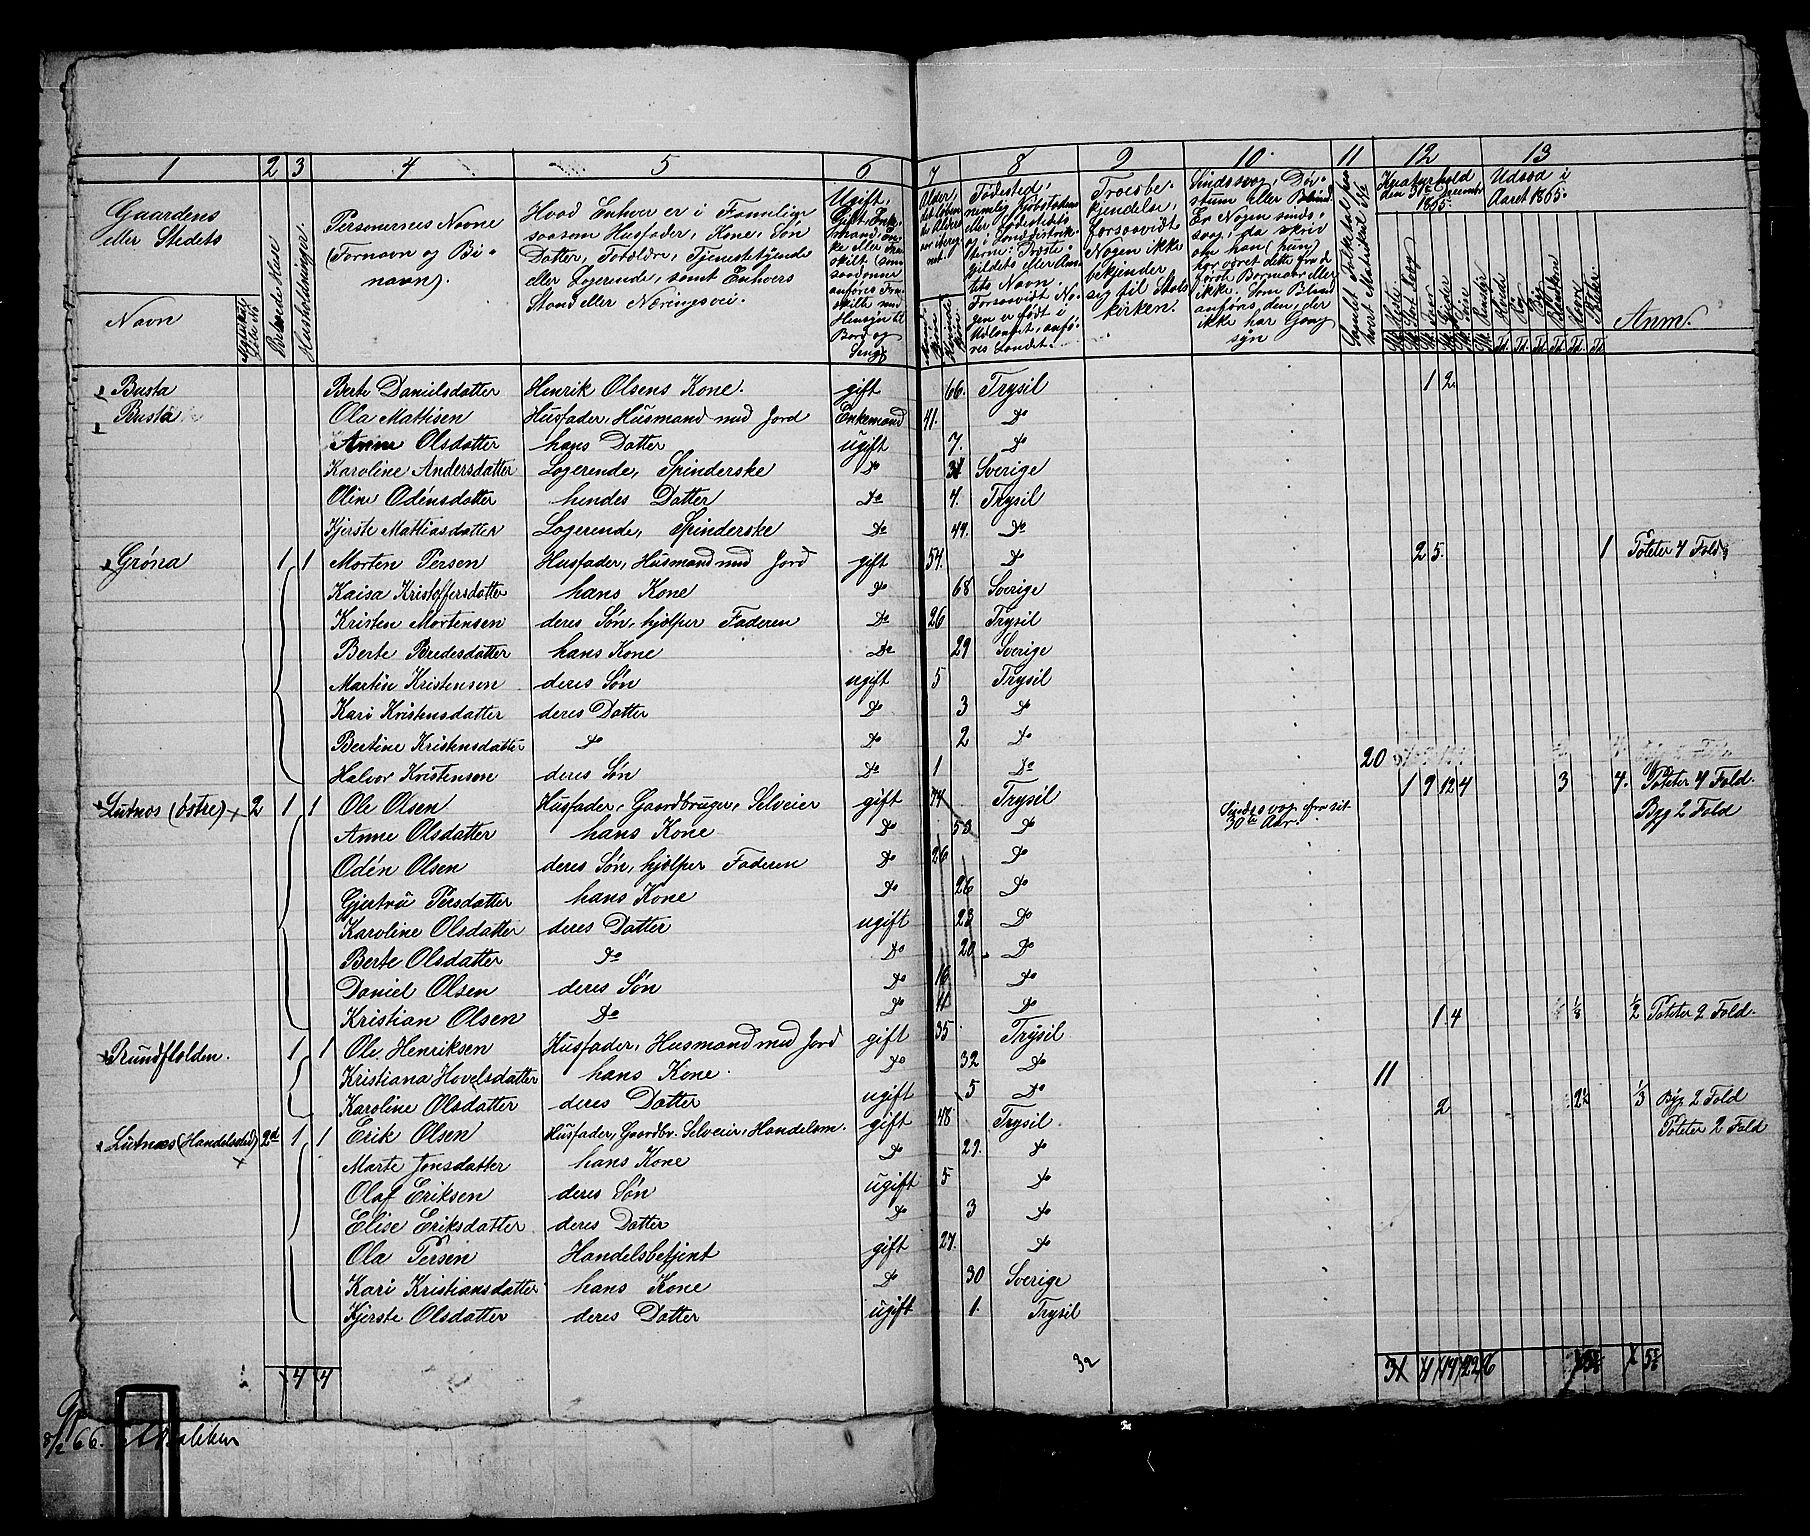 1 2 3 4 5 6 7 8 9 10 11 12 13
Gaardens eller Stedets
Navn
Beboede Huse
Husholdninger.
Personernes Navne (Fornavn og Binavn).
Hvad Enhver er i Familien saasom Husfader, Kone, Søn Datter, Forældre, Tjenestetyende eller Logerende, samt Enhvers Stand eller Næringsvei.
Ugift, Gift, Enkemand, Enke eller Fraskilt (som saadanne anføres Fraskilte med Hensyn til Bord og Seng)
Fødested, nemlig Kjøbstadens eller Ladestedets og i Landdistrikterne: Præstegjeldets eller Annexets Navn. Forsaavidt Nogen er født i Udlandet anføres Landet.
Troesbekjendelse, forsaavidt Nogen ikke bekjender sig til Statskirken.
Sindssvag, Døvstum eller Blind. Er Nogen sindssvag, da skriv om han (hun) har været dette fra de første Barneaar eller ikke. Som Blind anføres den, der ikke har Gangsyn
Kreaturhold den 31te December 1865.
Udsæd i Aaret 1865.
Anm.
Busta Berte Danielsdatter Henrik Olsens Kone. gift 66. Trysil 1 2
Busta Ola Mathisen Husfader, Husmand med Jord Enkemand 41. Do
Anne Olsdatter hans Datter ugift 7. Do
Karoline Andersdatter Logerende, Spinderske Do Sverige
Oline Odénsdatter hendes Datter Do 4. Trysil
Kjerste Mathiasdatter Logerende, Spinderske Do 49. Do
Grøna 1 1 Morten Persen Husfader, Husmand med Jord gift 54. Do 2 5. 1 Poteter 4 Fold
Kaisa Kristoffersdatter hans Kone Do 68 Sverige
Kristen Mortensen deres Søn, hjælper Faderen Do 26 Trysil
Berte Bredesdatter hans Kone Do 29 Sverige
Martin Kristensen deres Søn ugift 5 Trysil
Kari Kristensdatter deres Datter Do 3 Do
Bertine Kristensdatter Do Do 2 Do
Halvor Kristensen deres Søn Do 1 Do 20
Lutnæs (østre) 2 1 1 Ole Olsen Husfader, Gaardbruger, Selveier gift 74 Trysil 1 9 12 4 3 4. Poteter 4 Fold.
Anne Olsdatter hans Kone Do 50 Do Sindssvag fra sit 30te Aar. Byg 2 Fold
Odén Olsen deres Søn, hjælper Faderen Do 26 Do
Gjertru Persdatter hans Kone Do 26 Do
Karoline Olsdatter deres Datter ugift 23 Do
Berte Olsdatter Do Do 20 Do
Daniel Olsen deres Søn Do 16 Do
Kristian Olsen Do Do 11 Do
Rundfloden. 1 1 Ole Henriksen Husfader, Husmand med Jord gift 35 Trysil 1 4 1/8 1/2 Poteter 2 Fold.
Kristiana Hovelsdatter hans Kone. Do 32 Do 11
Karoline Olsdatter deres Datter ugift 5 Do
Lutnæs (Handelssted) 2a 1 1 Erik Olsen Husfader, Gaardbr. Selveier, Handelsm. gift 48 Trysil 2 2½ 1/3 Byg 2 Fold
Marte Jonsdatter hans Kone Do 29. Do Poteter 2 Fold
Olaf Eriksen deres Søn ugift 5 Do
Elise Eriksdatter deres Datter Do 3 Do
Ola Persen Handelsbetjent gift 27. Do
Kari Kristiansdatter hans Kone Do 30 Sverige
Kjerste Olsdatter deres Datter ugift 1. Trysil
4 4 32 31